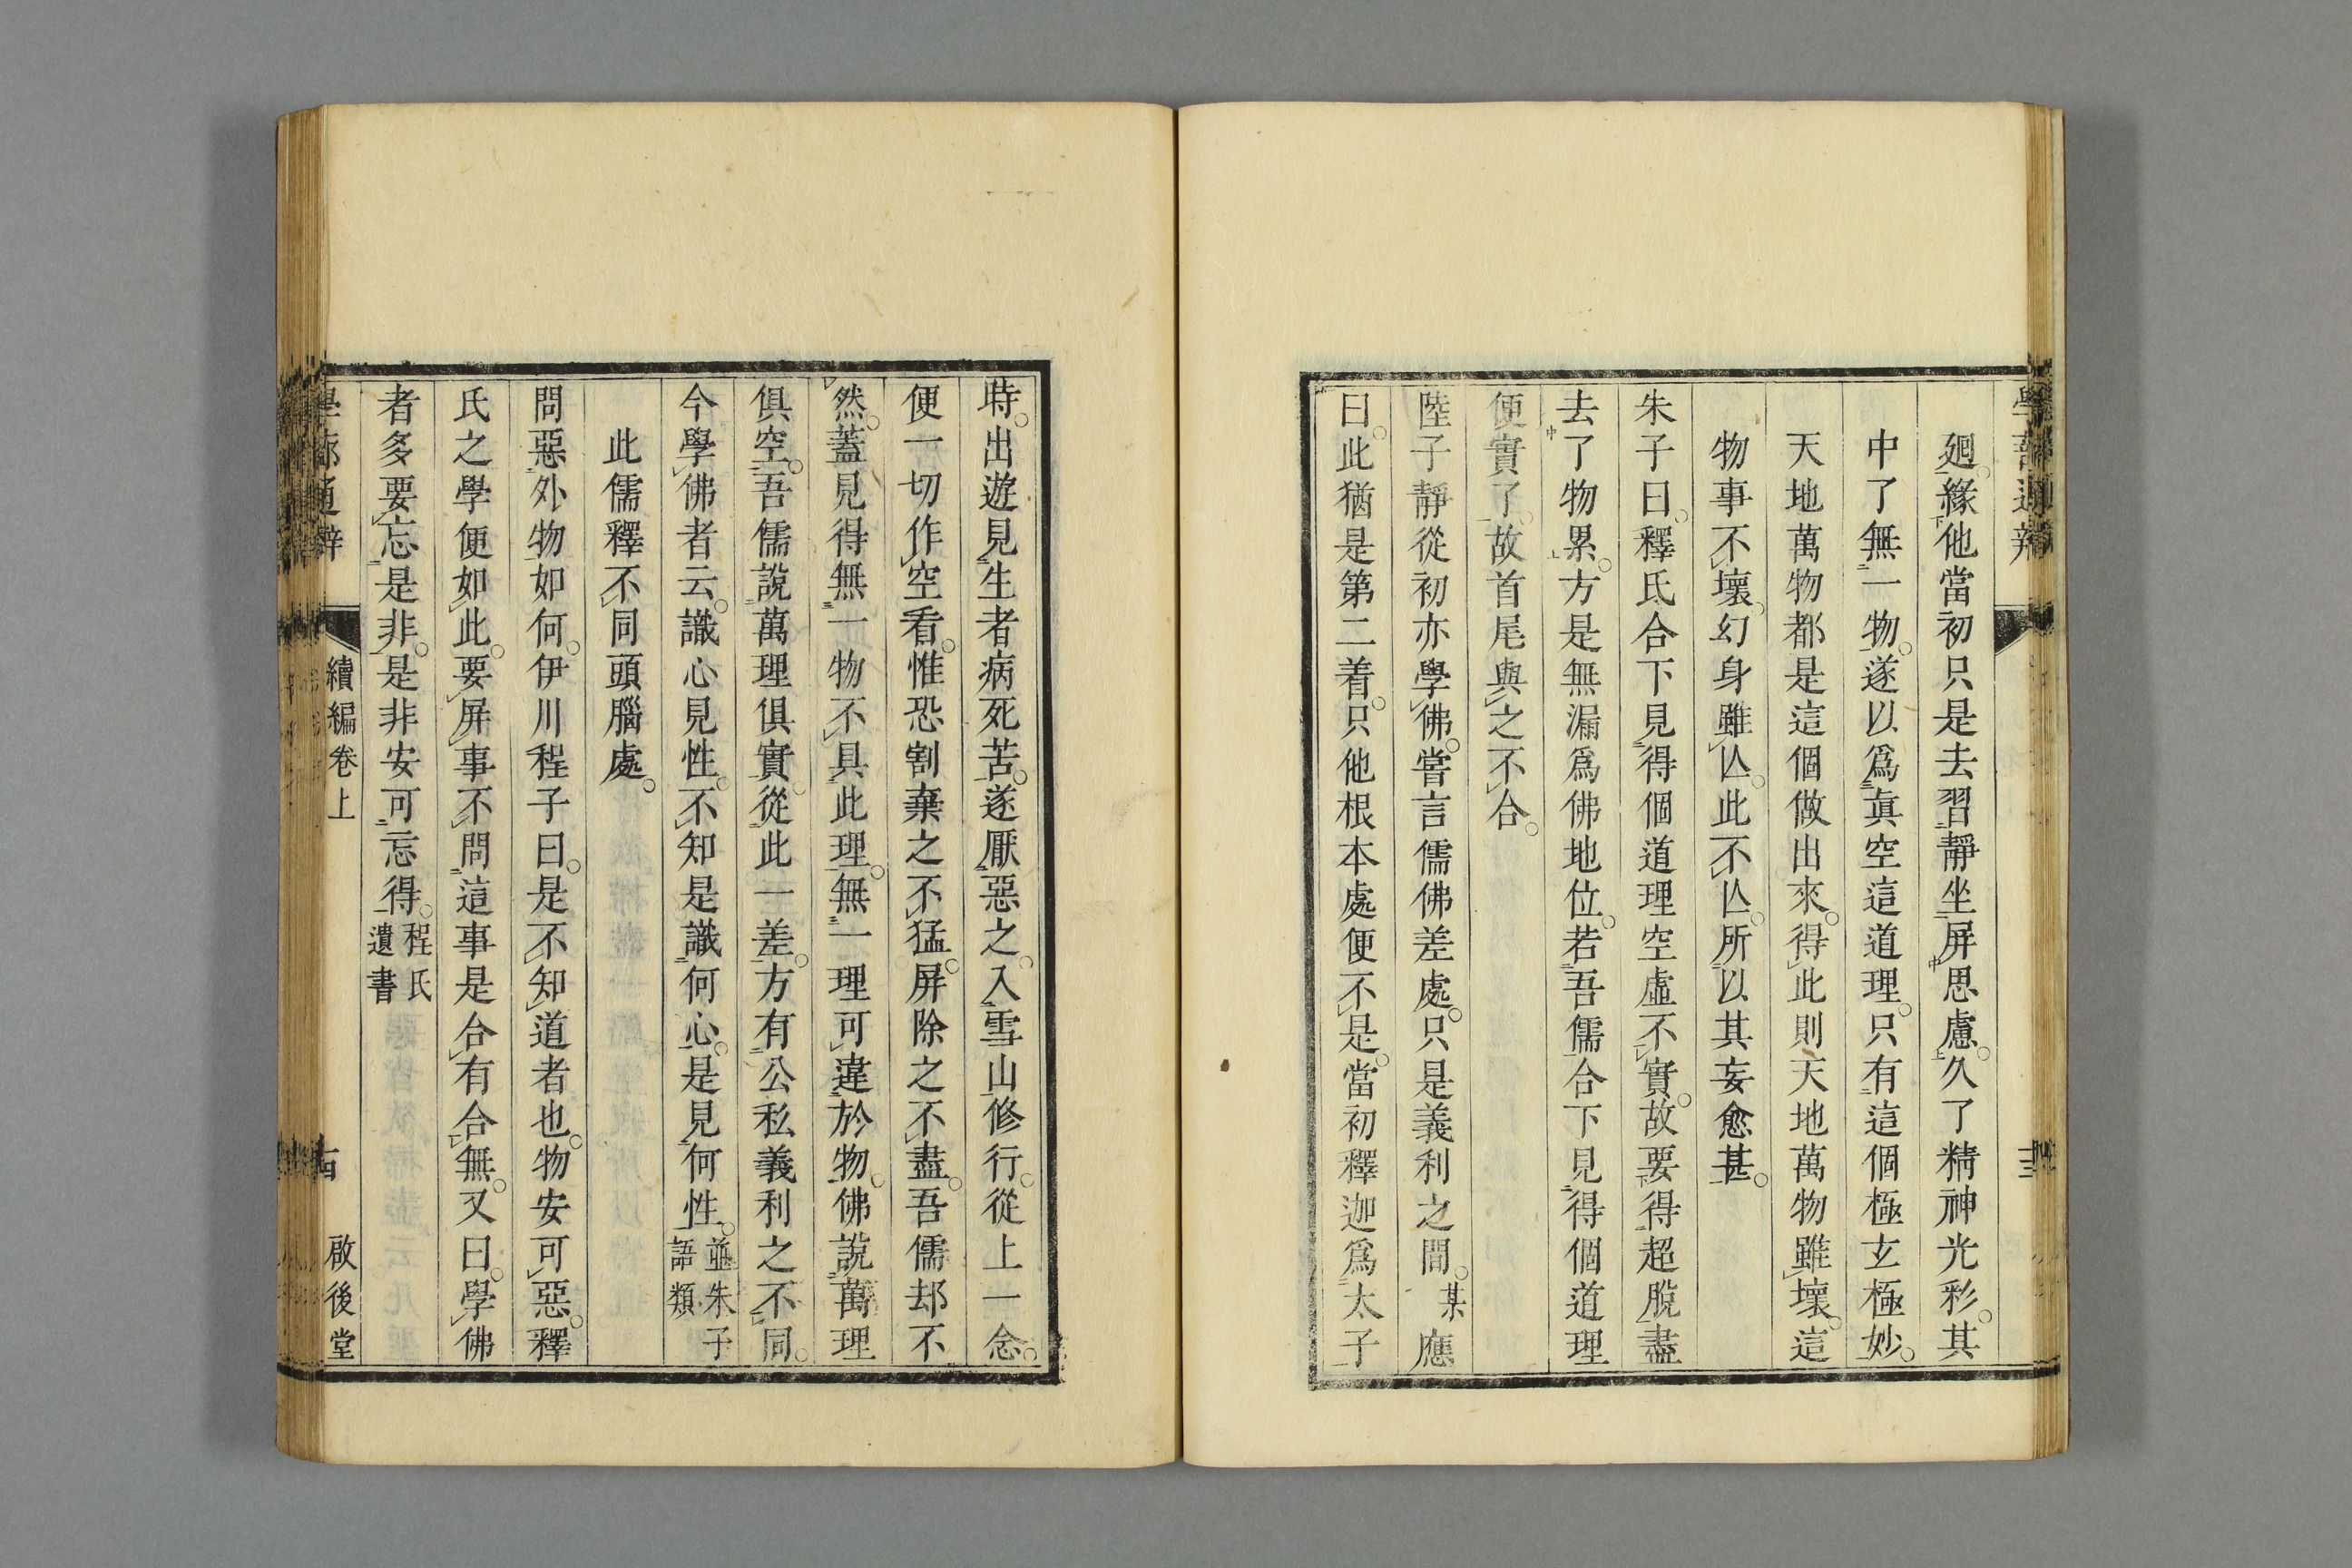 學蔀通辨
十三
廻緣他當初只是去習靜坐屏思慮久了精神光彩其
中了無一物遂以爲眞空這道理只有這個極玄極妙
天地萬物都是這個做出來得此則天地萬物雖壞這
物事不壞幻身雖亾此不亾所以其妄愈甚
朱子曰釋氏合下見得個道理空虛不實故要得超脫盡
去了物累方是無漏爲佛地位若吾儒合下見得個道理
便實了故首尾與之不合
陸子靜從初亦學佛嘗言儒佛差處只是義利之間某應
曰此猶是第二着只他根本處便不是當初釋迦爲太子
時出遊見生者病死苦遂厭惡之入雪山修行從上一念
便一切作空看惟恐割棄之不猛屏除之不盡吾儒却不
然蓋見得無一物不具此理無一理可違於物佛說萬理
俱空吾儒說萬理俱實從此一差方有公私義利之不同
今學佛者云識心見性不知是識何心是見何性並朱子語類
此儒釋不同頭腦處
問惡外物如何伊川程子曰是不知道者也物安可惡釋
氏之學便如此要屏事不問這事是合有合無又曰學佛
者多要忘是非是非安可忘得程氏遺書
學蔀通辨 續編卷上 十四 啟後堂